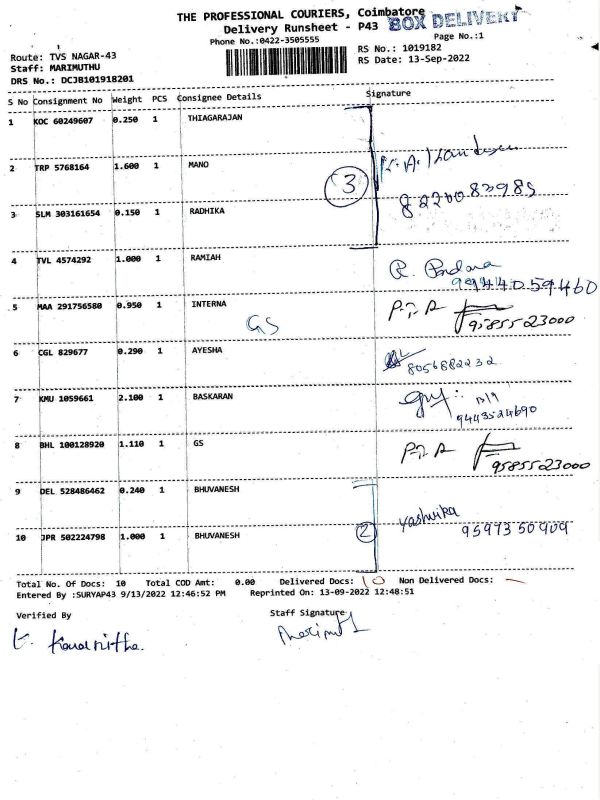 THE PROFESSIONAL COURIERS, Coimbatore
Delivery Runsheet - P43 BOX DELIVERY
Phone No.:0422-3505555 Page No.:1
Route: TVS NAGAR-43 RS No.: 1019182
Staff: MARIMUTHU RS Date: 13-Sep-2022
DRS No.: DCJB101918201
S No Consignment No Weight PCS Consignee Details Signature
1 KOC 60249607 0.250 1 THIAGARAJAN
2 TRP 5768164 1.600 1 MANO
3
3 SLM 303161654 0.150 1 RADHIKA
8220083985
4 TVL 4574292 1.000 1 RAMIAH
9944059460
5 MAA 291756580 0.950 1 INTERNA
GS 9585523000
6 CGL 829677 0.290 1 AYESHA
8056882232
7 KMU 1059661 2.100 1 BASKARAN
9443524690
8 BHL 100128920 1.110 1 GS
9585523000
9 DEL 528486462 0.240 1 BHUVANESH
Yashvika
10 JPR 502224798 1.000 1 BHUVANESH 2 9597350909
Total No. Of Docs: 10 Total COD Amt: 0.00 Delivered Docs: 10 Non Delivered Docs: -
Entered By :SURYAP43 9/13/2022 12:46:52 PM Reprinted On: 13-09-2022 12:48:51
Verified By Staff Signature